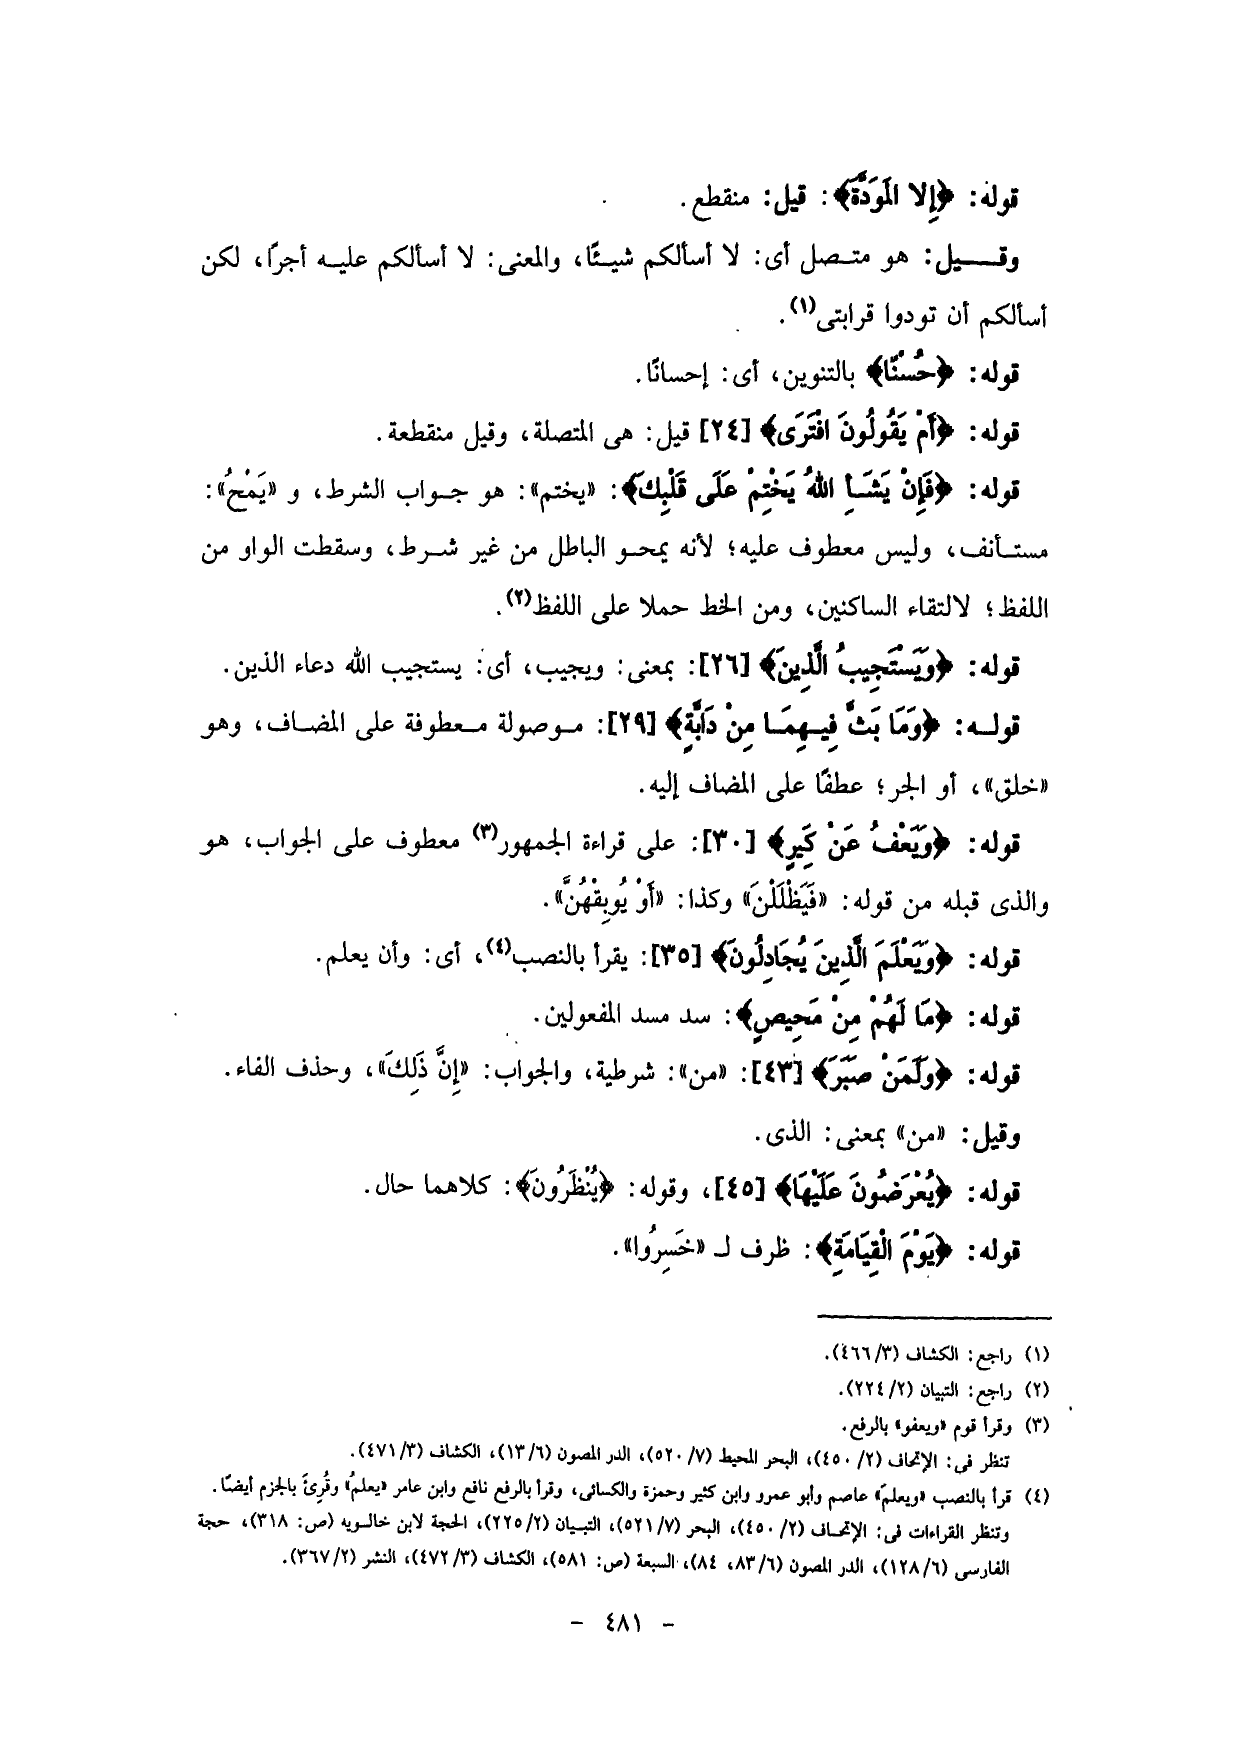 قوله: ﴿إِلا الْمَوَدَّةَ﴾: قيل: منقطع.
وقـــيل: هو متـصل أى: لا أسألكم شيـئًا، والمعنى: لا أسألكم عليـه أجرًا، لكن
أسألكم أن تودوا قرابتى(١).
قوله: ﴿حُسْنًا﴾ بالتنوين، أى: إحسانًا.
قوله: ﴿أَمْ يَقُولُونَ افْتَرَى﴾ [٢٤] قيل: هى المتصلة، وقيل منقطعة.
قوله: ﴿فَإِنْ يَشَـإِ اللهُ يَخْتِمْ عَلَى قَلْبِكَ﴾: «يختم»: هو جـواب الشرط، و «يَمْحُ»:
مستـأنف، وليس معطوف عليه؛ لأنه يمحـو الباطل من غير شـرط، وسقطت الواو من
اللفظ؛ لالتقاء الساكنين، ومن الخط حملا على اللفظ(٢).
قوله: ﴿وَيَسْتَجِيبُ الَّذِينَ﴾ [٢٦]: بمعنى: ويجيب، أى: يستجيب الله دعاء الذين.
قولـه: ﴿وَمَا بَثَّ فِيـهِمَـا مِنْ دَابَّةٍ﴾ [٢٩]: مـوصولة مـعطوفة على المضـاف، وهو
«خلق»، أو الجر؛ عطفًا على المضاف إليه.
قوله: ﴿وَيَعْفُ عَنْ كَثِيرٍ﴾ [٣٠]: على قراءة الجمهور(٣) معطوف على الجواب، هو
والذى قبله من قوله: «فَيَظْلَلْنَ» وكذا: «أَوْ يُوبِقْهُنَّ».
قوله: ﴿وَيَعْلَمَ الَّذِينَ يُجَادِلُونَ﴾ [٣٥]: يقرأ بالنصب(٤)، أى: وأن يعلم.
قوله: ﴿مَا لَهُمْ مِنْ مَحِيصٍ﴾: سد مسد المفعولين.
قوله: ﴿وَلَمَنْ صَبَرَ﴾ [٤٣]: «من»: شرطية، والجواب: «إِنَّ ذَلِكَ»، وحذف الفاء.
وقيل: «من» بمعنى: الذى.
قوله: ﴿يُعْرَضُونَ عَلَيْهَا﴾ [٤٥]، وقوله: ﴿يَنْظُرُونَ﴾: كلاهما حال.
قوله: ﴿يَوْمَ الْقِيَامَةِ﴾: ظرف لـ «خَسِرُوا».
(١) راجع: الكشاف (٣/٤٦٦).
(٢) راجع: التبيان (٢/٢٢٤).
(٣) وقرأ قوم «ويعفو» بالرفع.
تنظر فى: الإتحاف (٢/٤٥٠)، البحر المحيط (٧/٥٢٠)، الدر المصون (٦/١٣)، الكشاف (٣/٤٧١).
(٤) قرأ بالنصب «ويعلمَ» عاصم وأبو عمرو وابن كثير وحمزة والكسائى، وقرأ بالرفع نافع وابن عامر «يعلمُ» وقُرِئَ بالجزم أيضًا.
وتنظر القراءات فى: الإتحـاف (٢/٤٥٠)، البحر (٧/٥٢١)، التبـيان (٢/٢٢٥)، الحجة لابن خالـويه (ص: ٣١٨)، حجة
الفارسى (٦/١٢٨)، الدر المصون (٦/٨٣، ٨٤)، السبعة (ص: ٥٨١)، الكشاف (٣/٤٧٢)، النشر (٢/٣٦٧).
- ٤٨١ -